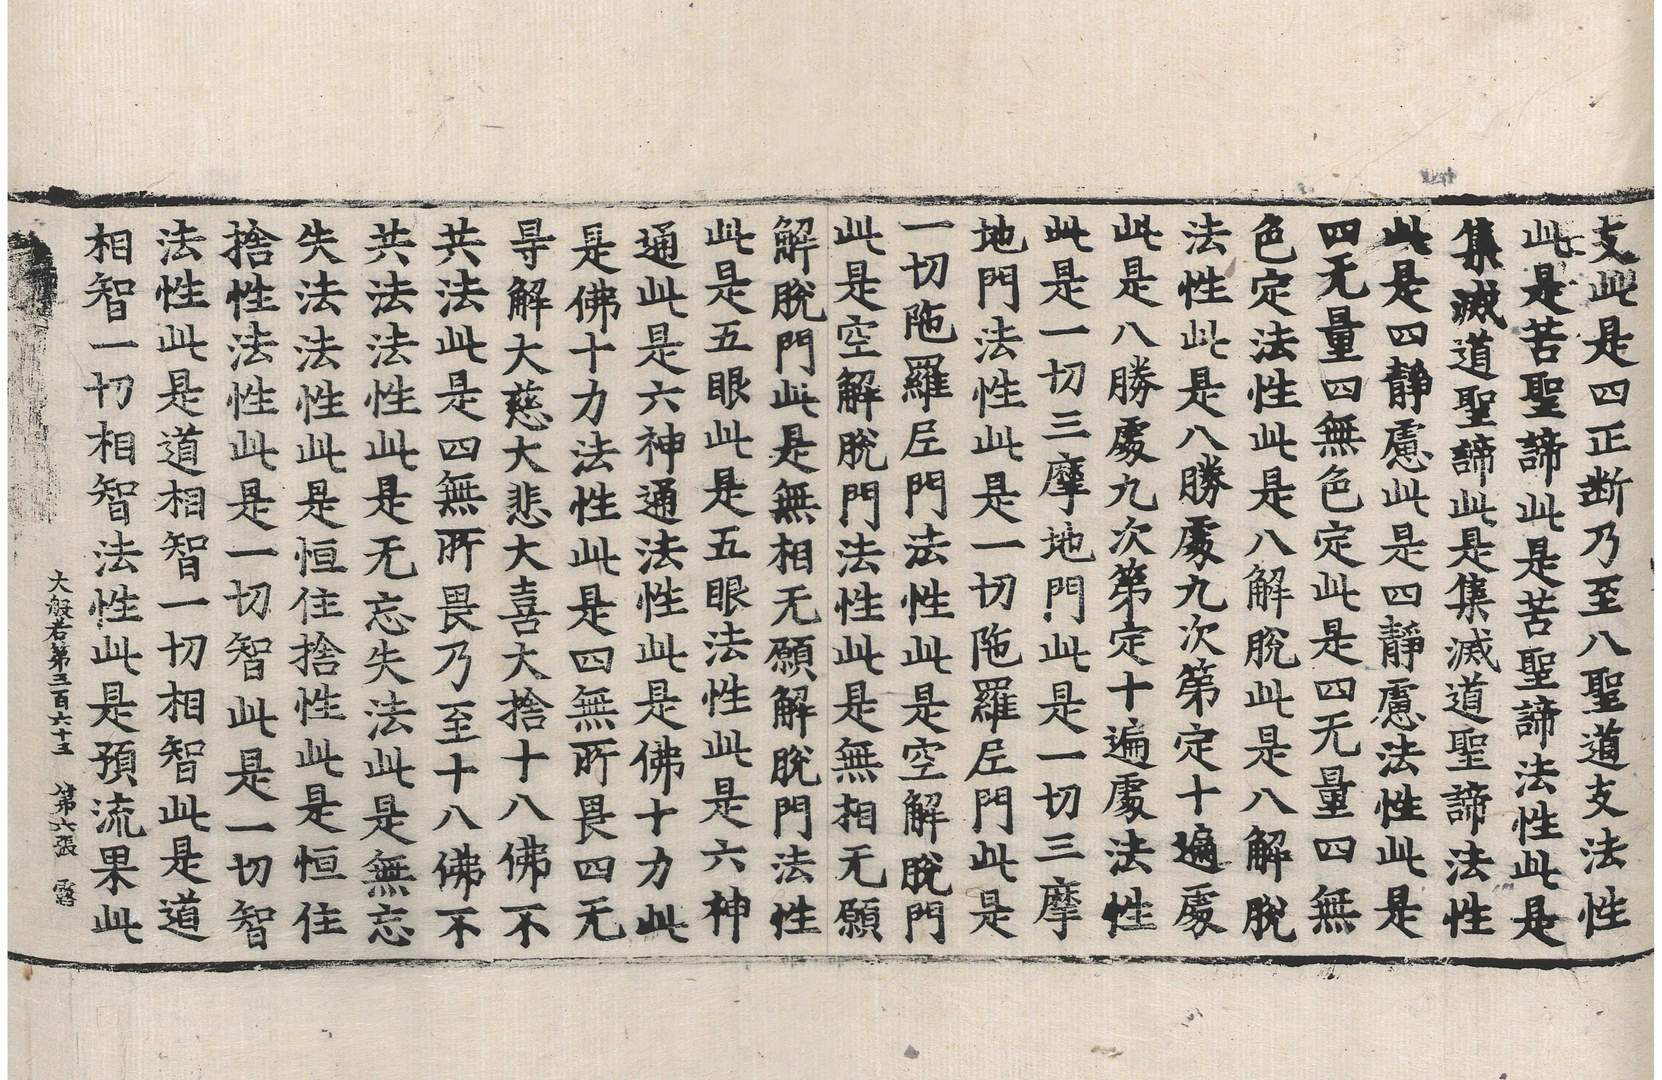 支此是四正断乃至八聖道支法性
此是苦聖諦此是苦聖諦法性此是
集滅道聖諦此是集滅道聖諦法性
此是四靜慮此是四靜慮法性此是
四无量四無色定此是四无量四無
色定法性此是八解脫此是八解脫
法性此是八勝處九次第定十遍處
此是八勝處九次第定十遍處法性
此是一切三摩地門此是一切三摩
地門法性此是一切陁羅尼門此是
一切陁羅尼門法性此是空解脫門
此是空解脫門法性此是無相无願
解脫門此是無相无願解脫門法性
此是五眼此是五眼法性此是六神
通此是六神通法性此是佛十力此
是佛十力法性此是四無所畏四无
㝵解大慈大悲大喜大捨十八佛不
共法此是四無所畏乃至十八佛不
共法法性此是无忘失法此是無忘
失法法性此是恒住捨性此是恒住
捨性法性此是一切智此是一切智
法性此是道相智一切相智此是道
相智一切相智法性此是預流果此
大般若第三百六十三 第六張 露